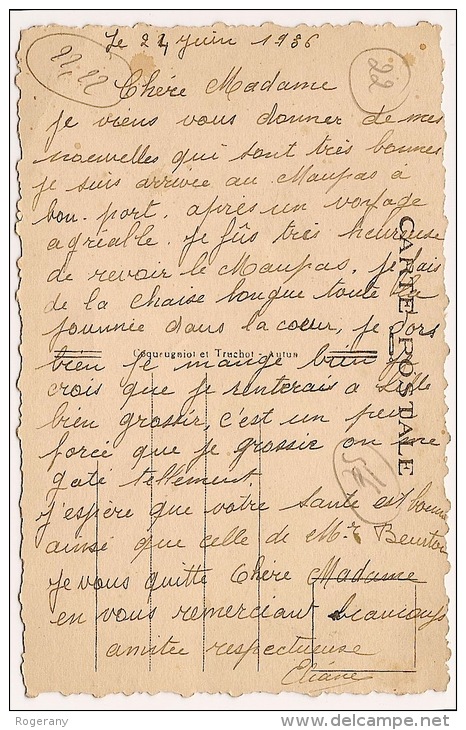 Le 24 Juin 1936
22
Chère Madame
je viens vous donner de mes
nouvelles qui sont très bonnes
je suis arrivée au Maupas a
bon-port, après un voyage
agréable. Je fûs très heureuse
de revoir le Maupas, je fais
de la chaise longue toute la
journnée dans la coeur, je dors
Coqueugniot et Truchot - Autun
bien je mange bien je
crois que je renterais a Lille
bien grossir, c'est un peu
forcé que je grossie on me
gaté tellement
j'espère que votre santé est bonne
ainsi que celle de Mr
je vous quitte Chère Madame
en vous remerciant beaucoup
amitée respectueuse
Eliane
CARTE POSTALE
Rogerany
www.delcampe.net